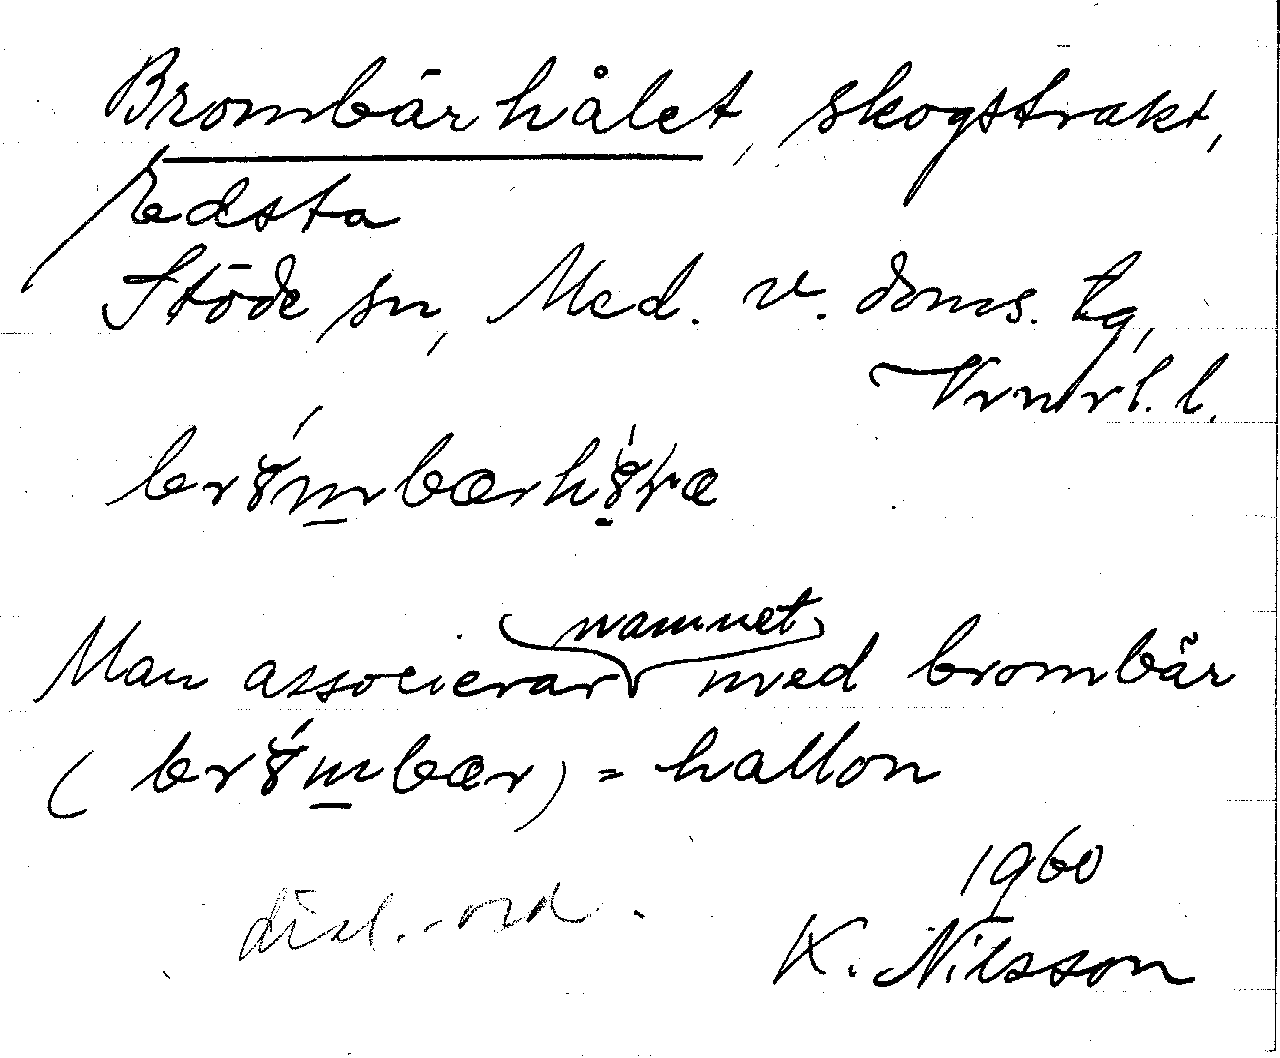 Brombärhålet, skogstrakt,
Edsta
Stöde sn, Med. v. doms. tg,
Vrnrl. l.
Man associerar namnet med brombär
) = hallon
dial.-ord.
1960
K. Nilsson